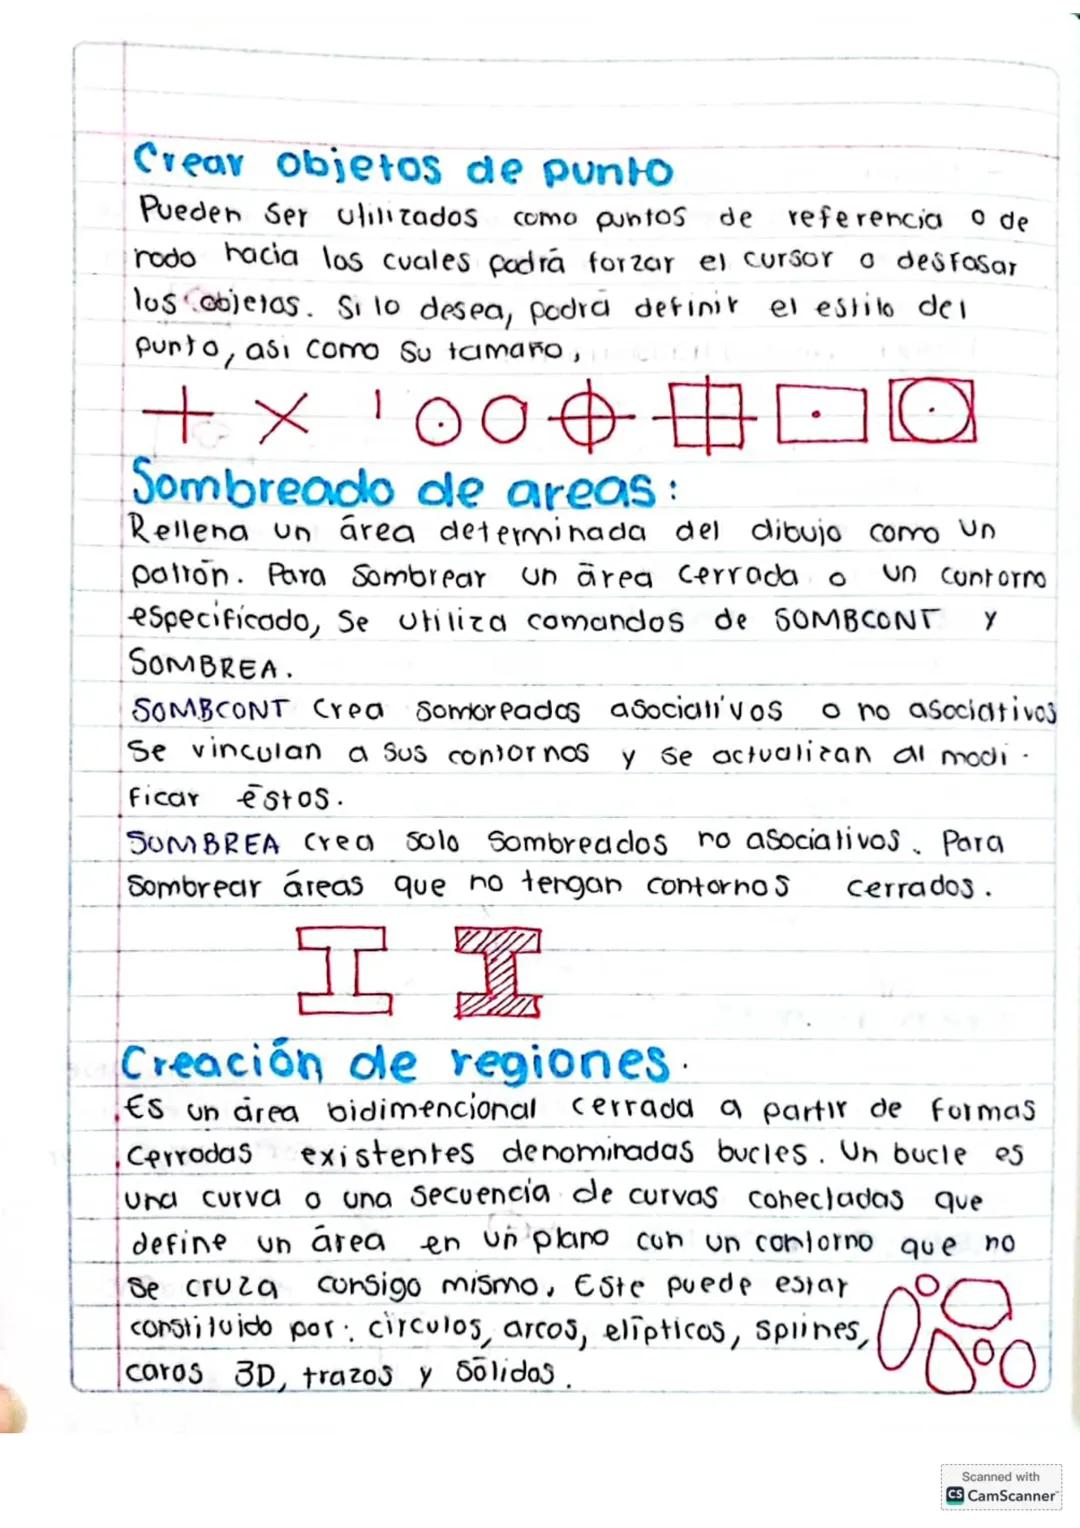 Crear objetos de punto
Pueden Ser utilizados como puntos de referencia o de
nodo hacia los cuales podrá forzar el cursor o desfasar
los objetos. Si lo desea, podrá definir el estilo del
punto, asi como su tamaño,
Sombreado de areas:
Rellena un área determinada del dibujo como un
patrón. Para Sombrear un área cerrada o un contorno
especificado, Se utiliza comandos de SOMBCONT y
SOMBREA.
SOMBCONT Crea sombreados asociativos o no asociativos
Se vinculan a sus contornos y se actualizan al modi-
ficar éstos.
SOMBREA Crea solo Sombreados no asociativos. Para
Sombrear áreas que no tengan contornos cerrados.
Creación de regiones.
Es un área bidimencional cerrada a partir de formas
Cerradas existentes denominadas bucles. Un bucle es
una curva o una secuencia de curvas conectadas que
define un área en un plano con un contorno que no
Se cruza consigo mismo, Este puede estar
constituido por: circulos, arcos, elípticos, splines,
caras 3D, trazos y Sólidos.
Scanned with
CS CamScanner